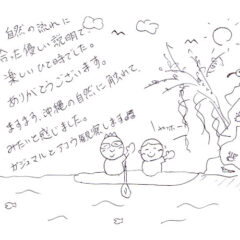 自然の流れに
合った優しい説明で、
楽しいひと時でした。
ありがとうございます。
ますます、沖縄の自然に触れて、
みたいと感じました。
ガジュマルとアコウ観察します♫